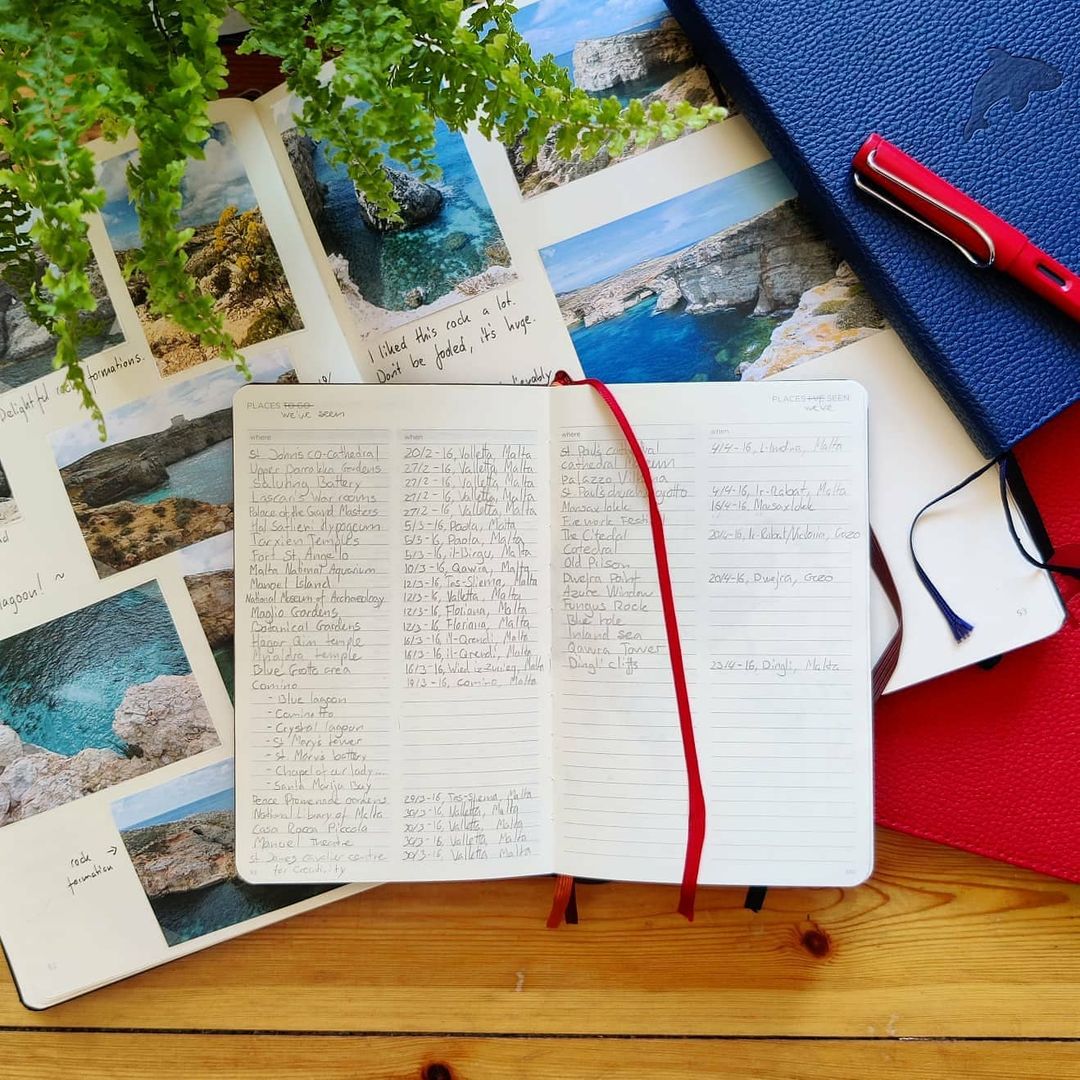 Delightful rock formations.
I liked this rock a lot.
Don't be fooled, it's huge.
lagoon! ~
rock →
formation
PLACES TO GO
we've seen
where
when
St Johns co-cathedral 20/2-16, Valletta, Malta
Upper Barrakka Gardens 27/2-16, Valletta, Malta
Saluting Battery 27/2-16, Valletta, Malta
Lascaris War rooms 27/2-16, Valletta, Malta
Palace of the Grand Masters 27/2-16, Valletta, Malta
Hal Saflieni hypogeum 5/3-16, Paola, Malta
Tarxien Temples 5/3-16, Paola, Malta
Fort St. Angelo 5/3-16, il-Birgu, Malta
Malta National Aquarium 10/3-16, Qawra, Malta
Manoel Island 12/3-16, Tas-Sliema, Malta
National Museum of Archaeology 12/3-16, Valletta, Malta
Maglio Gardens 12/3-16, Floriana, Malta
Botanical Gardens 12/3-16, Floriana, Malta
Hagar Qim temple 16/3-16, il-Qrendi, Malta
Mnajdra temple 16/3-16, il-Qrendi, Malta
Blue Grotto area 16/3-16, Wied iz-Zurrieq, Malta
Comino 19/3-16, Comino, Malta
- Blue lagoon
- Cominotto
- Crystal lagoon
- St Marys tower
- St. Marys battery
- Chapel of our lady...
- Santa Marija Bay
Peace Promenade gardens 29/3-16, Tas-Sliema, Malta
National Library of Malta 30/3-16, Valletta, Malta
Casa Rocca Piccola 30/3-16, Valletta, Malta
Manoel Theatre 30/3-16, Valletta, Malta
St James cavalier centre 30/3-16, Valletta, Malta
for Creativity
PLACES I'VE SEEN
we've
where
when
St Pauls cathedral 4/4-16, L-Imdina, Malta
cathedral Museum
Palazzo
St Pauls church grotto 4/4-16, Ir-Rabat, Malta
Marsaxlokk 16/4-16, Marsaxlokk
Firework
The Citadel 20/4-16, Ir-Rabat/Victoria, Gozo
Catedral
Old Prison
Dwejra Point 20/4-16, Dwejra, Gozo
Azure Window
Fungus Rock
Blue hole
Inland sea
Qawra Tower
Dingli cliffs 23/4-16, Dingli, Malta
53